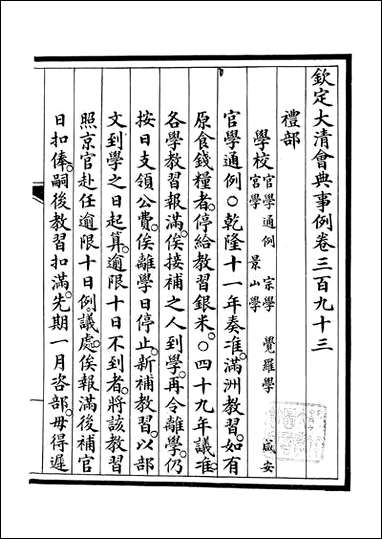 欽定大清會典事例卷三百九十三
禮部
學校官學通例 宗學 覺羅學 咸安
宮學 景山學
官學通例○乾隆十一年奏准。滿洲教習。如有
原食錢糧者。停給教習銀米。○四十九年議准。
各學教習報滿。俟接補之人到學。再令離學。仍
按日支領公費。俟離學日停止。新補教習。以部
文到學之日起算。逾限十日不到者。將該教習
照京官赴任逾限十日例。議處。俟報滿後補官
日扣俸。嗣後教習扣滿。先期一月咨部。毋得遲